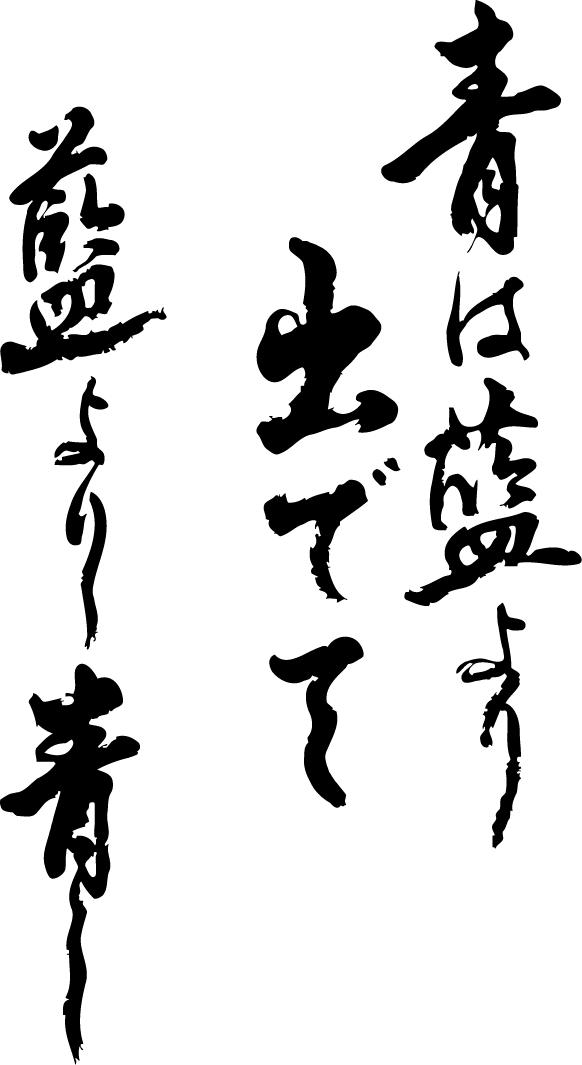 青は藍より
出でて
藍より青し